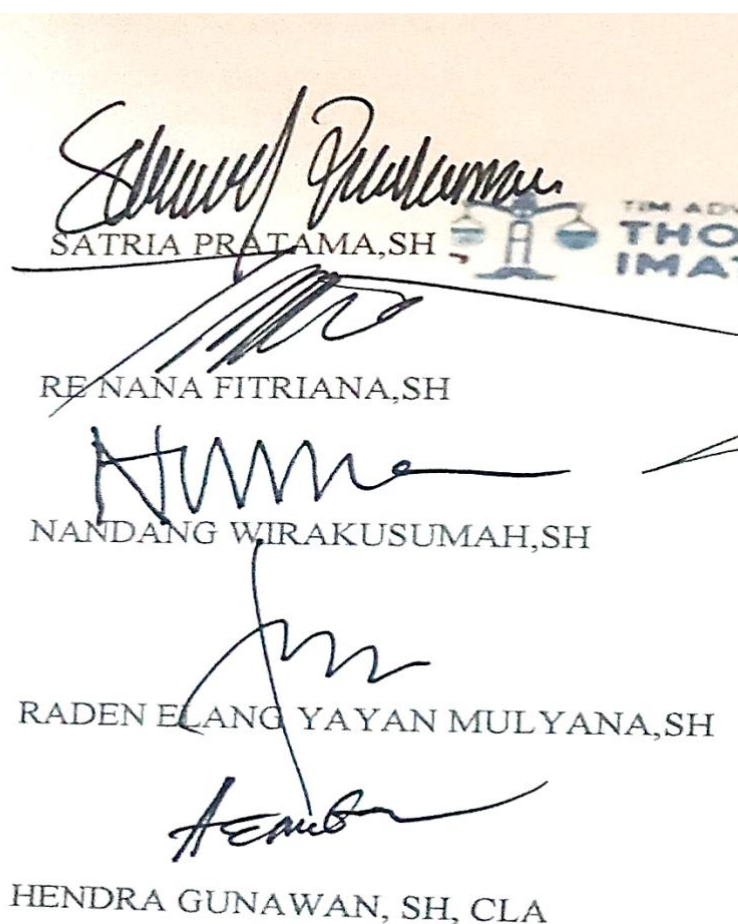 SATRIA PRATAMA,SH
TIM ADV
THO
IMAT
RE NANA FITRIANA,SH
NANDANG WIRAKUSUMAH,SH
RADEN ELANG YAYAN MULYANA,SH
HENDRA GUNAWAN, SH, CLA